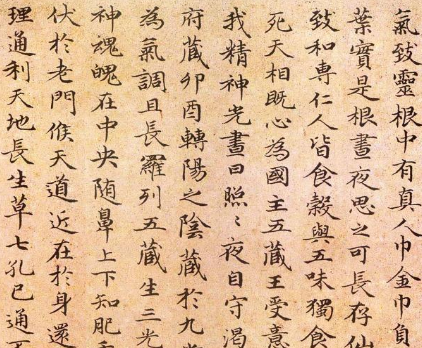 氣致靈根中有真人巾金巾負
葉實是根晝夜思之可長存仙
致和專仁人皆食穀與五味獨食
死天相既心為國主五藏王受意
我精神光晝日照〻夜自守渴
府藏卯酉轉陽之陰藏於九
為氣調且長羅列五藏生三光
神魂魄在中央随鼻上下知肥
伏於老門候天道近在於身還
理通利天地長生草七孔已通不